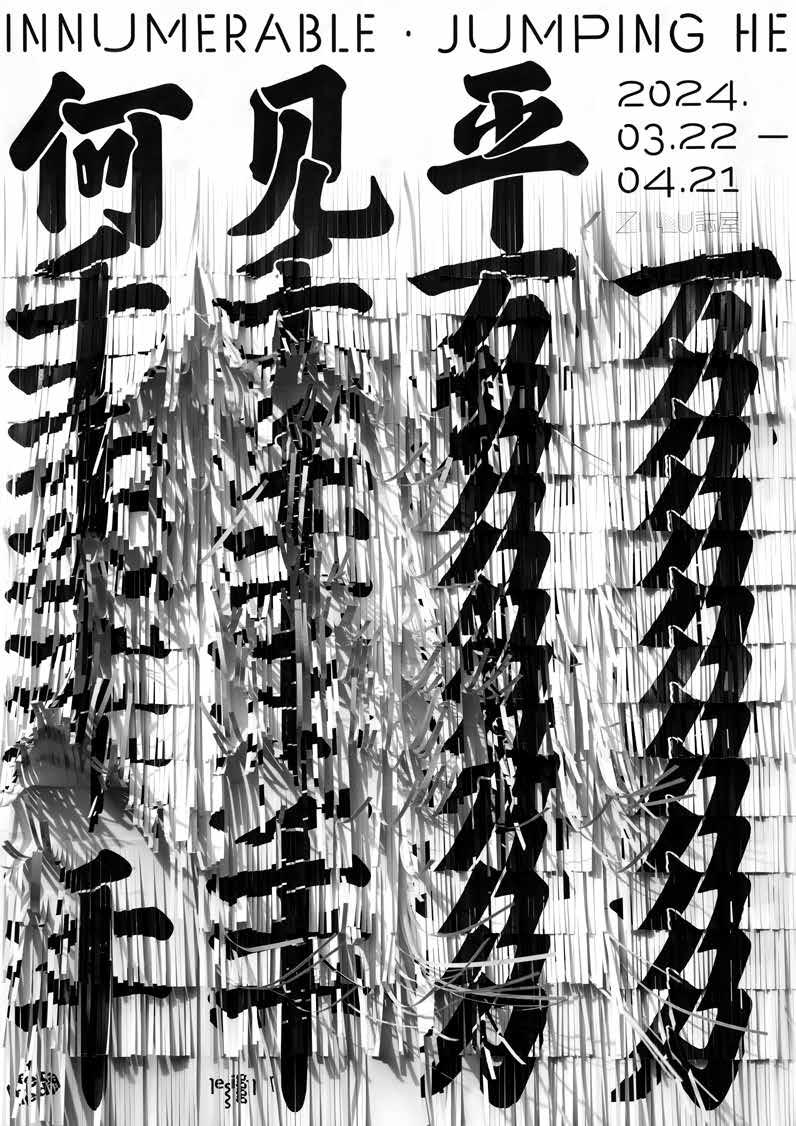 INNUMERABLE · JUMPING HE
何见平
2024.
03.22 —
04.21
ZiWU誌屋
千千万万